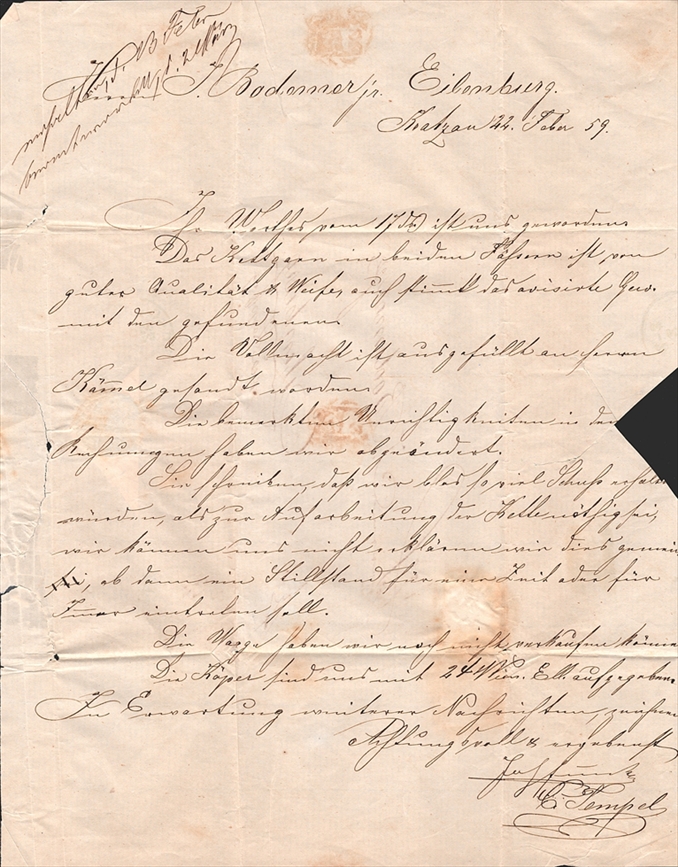 erhalten d. 23 Febr
beantwortet d. 2 März
Herrn J. Bodemer jr. Eilenburg.
Kratzau 22. Feber 59.
Ihr Werthes vom 17 ist uns geworden.
Das Kettgarn in beiden Fässern ist von
guter Qualität & Weife, auch stimmt das avisirte Gew.
mit den gefundenen.
Die Vollmacht ist ausgefüllt an Herrn
Kämmel gesandt worden.
Die bemerkten Unrichtigkeiten in den
Rechnungen haben wir abgeändert.
Sie schreiben, daß wir blos so viel Schuß erhalten
würden, als zur Aufarbeitung der Kette nöthig sei,
wir können uns nicht erklären wie dies gemeint
sei, ob dann ein Stillstand für eine Zeit oder für
Immer eintreten soll.
Die Wagge haben wir noch nicht verkaufen können
Die Köper sind uns mit 24 Wien. Ell. aufgegeben.
In Erwartung weiterer Nachrichten, zeichnen
Achtungsvoll & ergebenst
C. Tempel